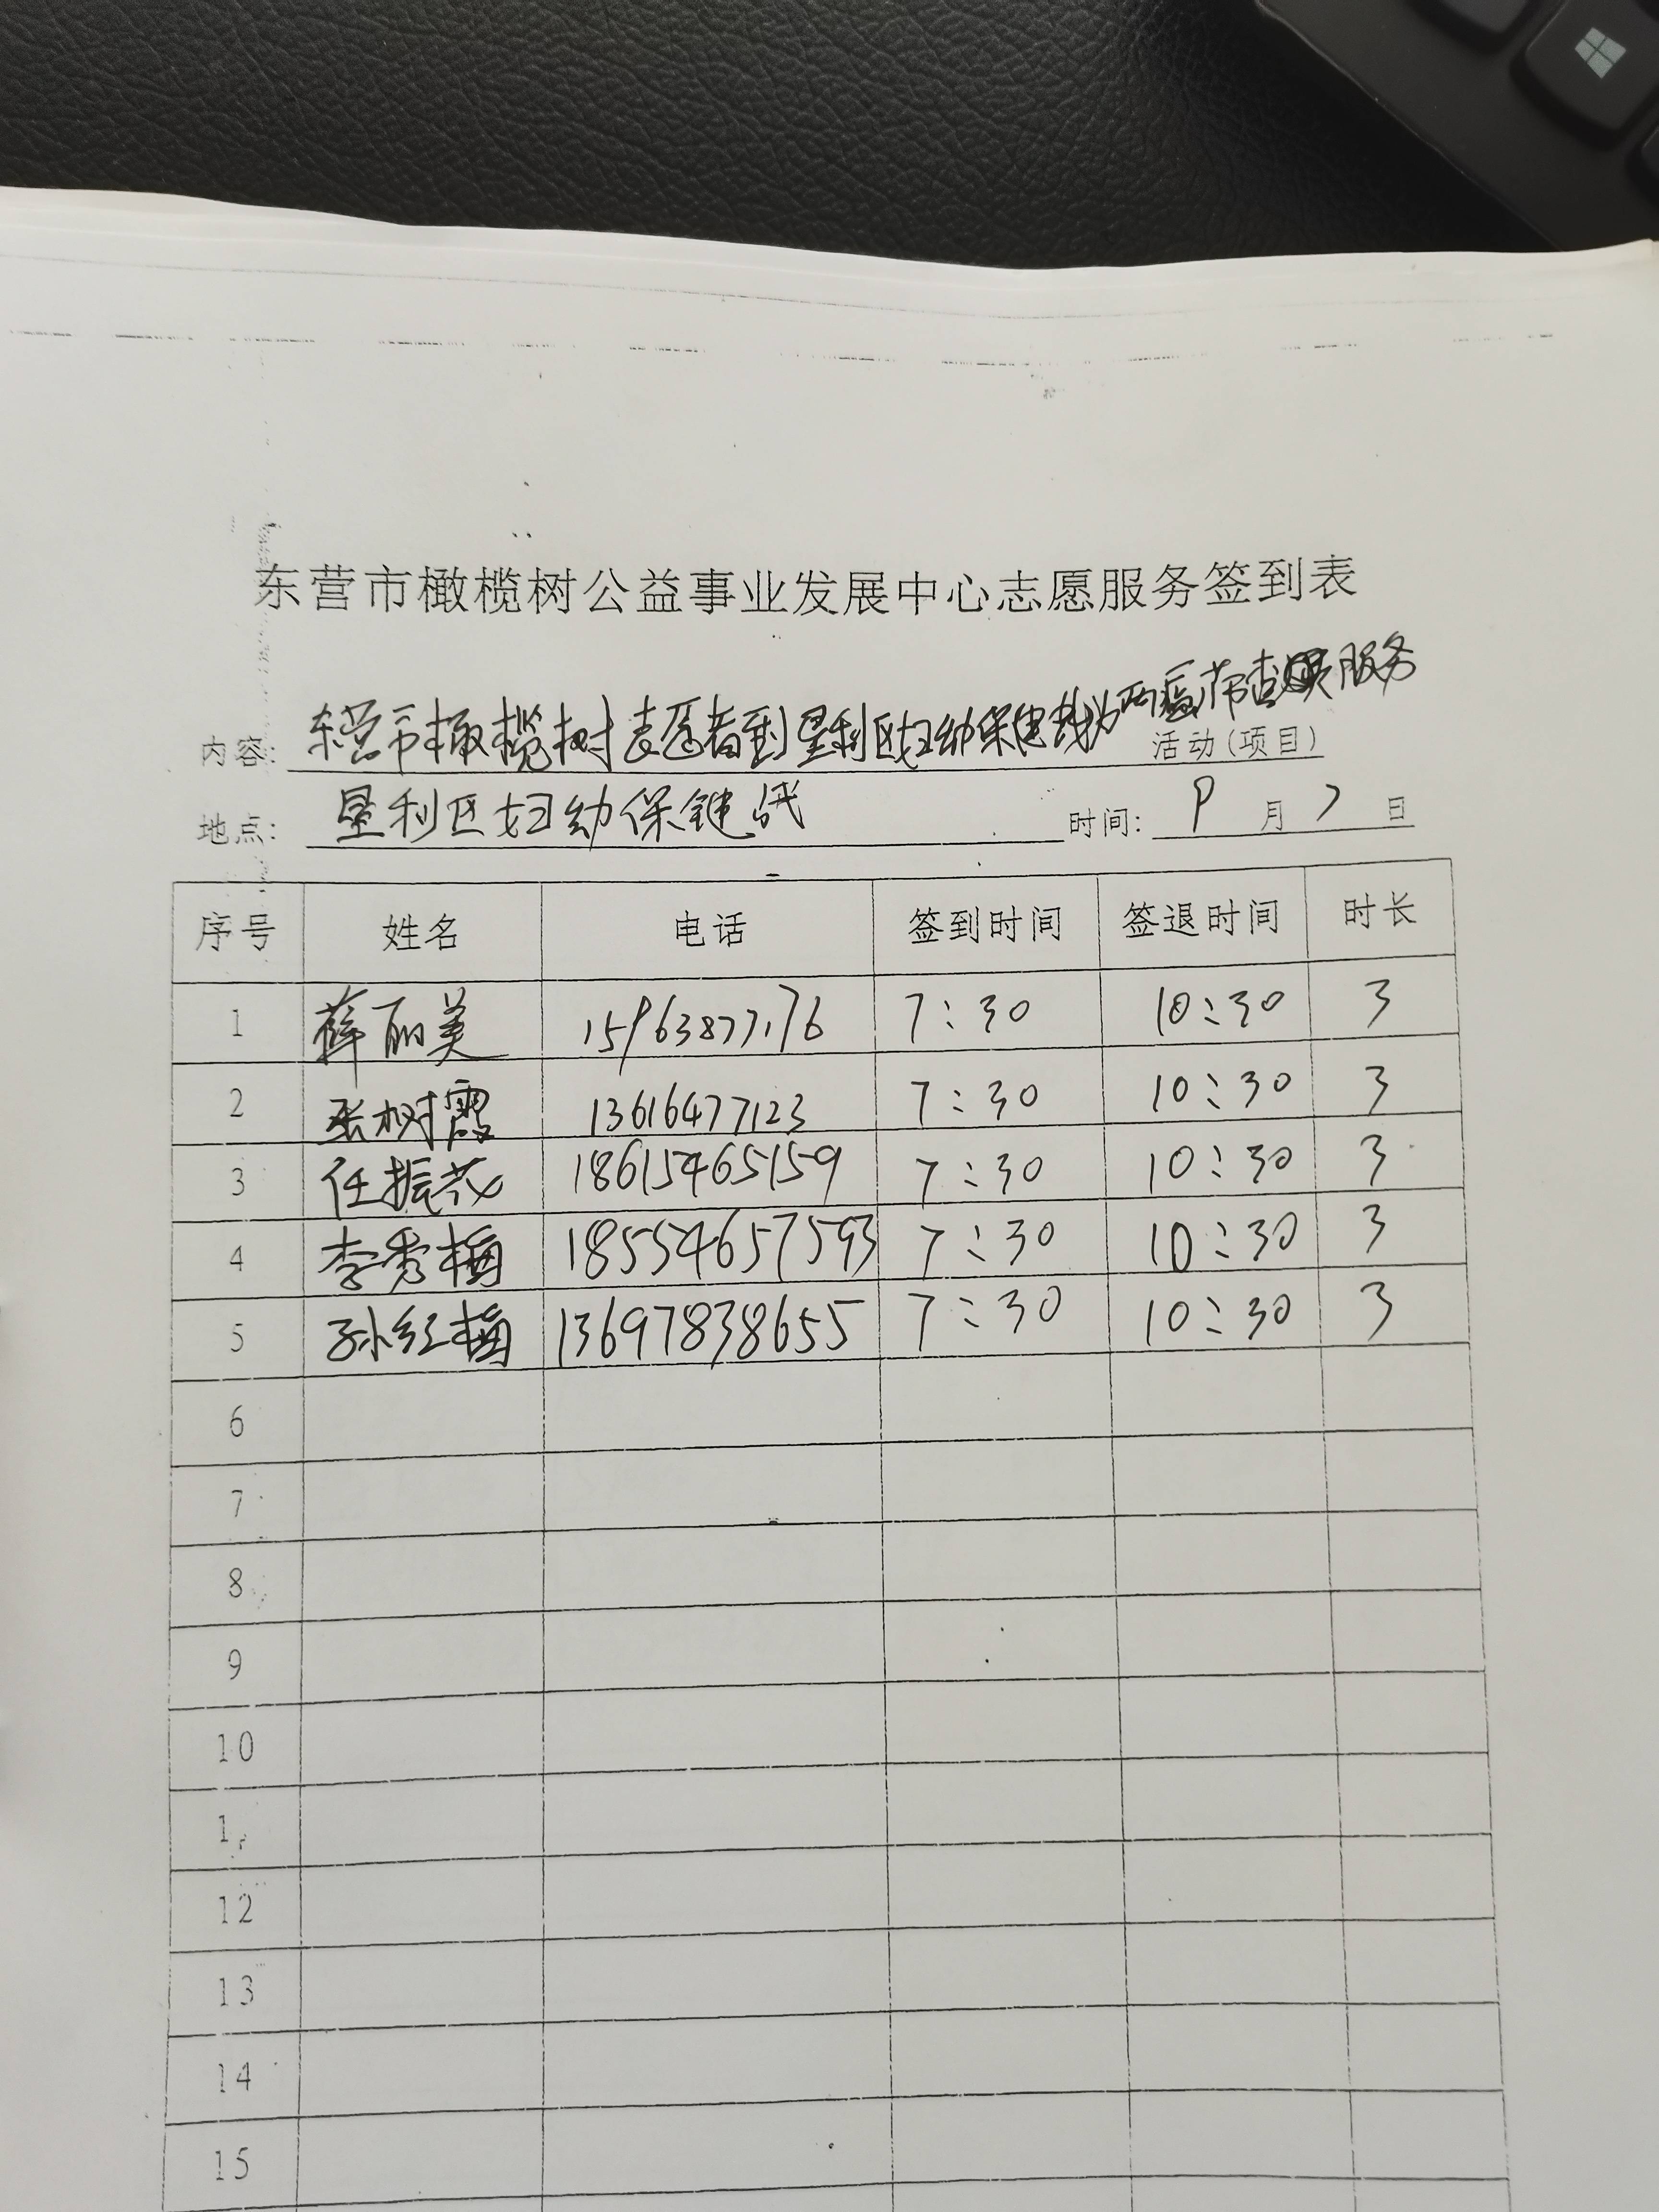 东营市橄榄树公益事业发展中心志愿服务签到表
内容: 东营市橄榄树志愿者到垦利区妇幼保健院为两癌筛查服务活动(项目)
地点: 垦利区妇幼保健院 时间: 9月7日
序号 姓名 电话 签到时间 签退时间 时长
1 薛丽美 15963877176 7:30 10:30 3
2 张树霞 13616477123 7:30 10:30 3
3 任振花 18615465159 7:30 10:30 3
4 李秀梅 18554657593 7:30 10:30 3
5 孙红梅 13697838655 7:30 10:30 3
6
7
8
9
10
1
12
13
14
15